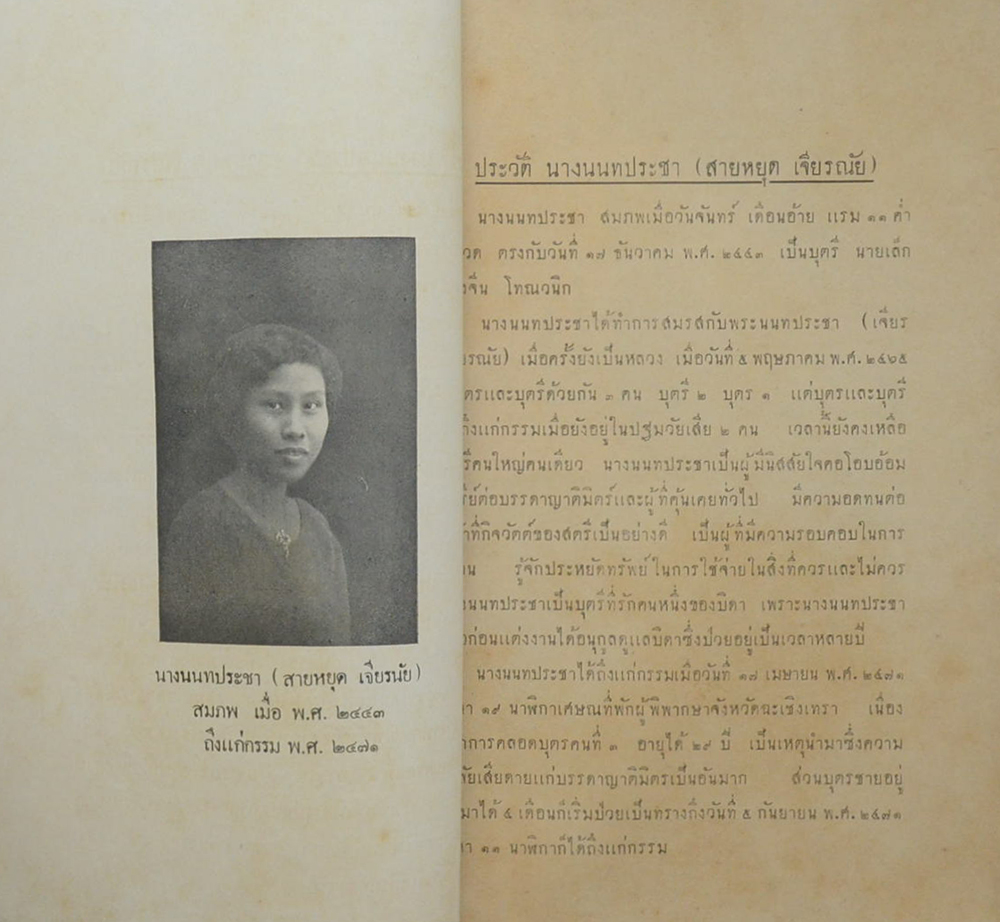 นางนนทประชา (สายหยุด เจียรนัย)
สมภพ เมื่อ พ.ศ. ๒๔๔๓
ถึงแก่กรรม พ.ศ. ๒๔๗๑
ประวัติ นางนนทประชา (สายหยุด เจียรณัย)
นางนนทประชา สมภพเมื่อวันจันทร์ เดือนอ้าย แรม ๑๑ ค่ำ
วด ตรงกับวันที่ ๑๗ ธันวาคม พ.ศ. ๒๔๔๓ เป็นบุตรี นายเล็ก
งจีน โทณวนิก
นางนนทประชาได้ทำการสมรสกับพระนนทประชา (เจียร
รณัย) เมื่อครั้งยังเป็นหลวง เมื่อวันที่ ๕ พฤษภาคม พ.ศ. ๒๔๖๕
ตรและบุตรีด้วยกัน ๓ คน บุตรี ๒ บุตร ๑ แต่บุตรและบุตรี
ถึงแก่กรรมเมื่อยังอยู่ในปฐมวัยเสีย ๒ คน เวลานี้ยังคงเหลือ
รีคนใหญ่คนเดียว นางนนทประชาเป็นผู้มีนิสสัยใจคอโอบอ้อม
รีย์ต่อบรรดาญาติมิตร์และผู้ที่คุ้นเคยทั่วไป มีความอดทนต่อ
าที่กิจวัตต์ของสตรีเป็นอย่างดี เป็นผู้ที่มีความรอบคอบในการ
น รู้จักประหยัดทรัพย์ในการใช้จ่ายในสิ่งที่ควรและไม่ควร
งนนทประชาเป็นบุตรีที่รักคนหนึ่งของบิดา เพราะนางนนทประชา
อก่อนแต่งงานได้อนุกูลดูแลบิดาซึ่งป่วยอยู่เป็นเวลาหลายปี
นางนนทประชาได้ถึงแก่กรรมเมื่อวันที่ ๑๗ เมษายน พ.ศ. ๒๔๗๑
า ๑๙ นาฬิกาเศษณที่พักผู้พิพากษาจังหวัดฉะเชิงเทรา เนื่อง
กการคลอดบุตรคนที่ ๓ อายุได้ ๒๙ ปี เป็นเหตุนำมาซึ่งความ
ลัยเสียดายแก่บรรดาญาติมิตรเป็นอันมาก ส่วนบุตรชายอยู่
มาได้ ๔ เดือนก็เริ่มป่วยเป็นทรางถึงวันที่ ๕ กันยายน พ.ศ. ๒๔๗๑
า ๑๑ นาฬิกาก็ได้ถึงแก่กรรม